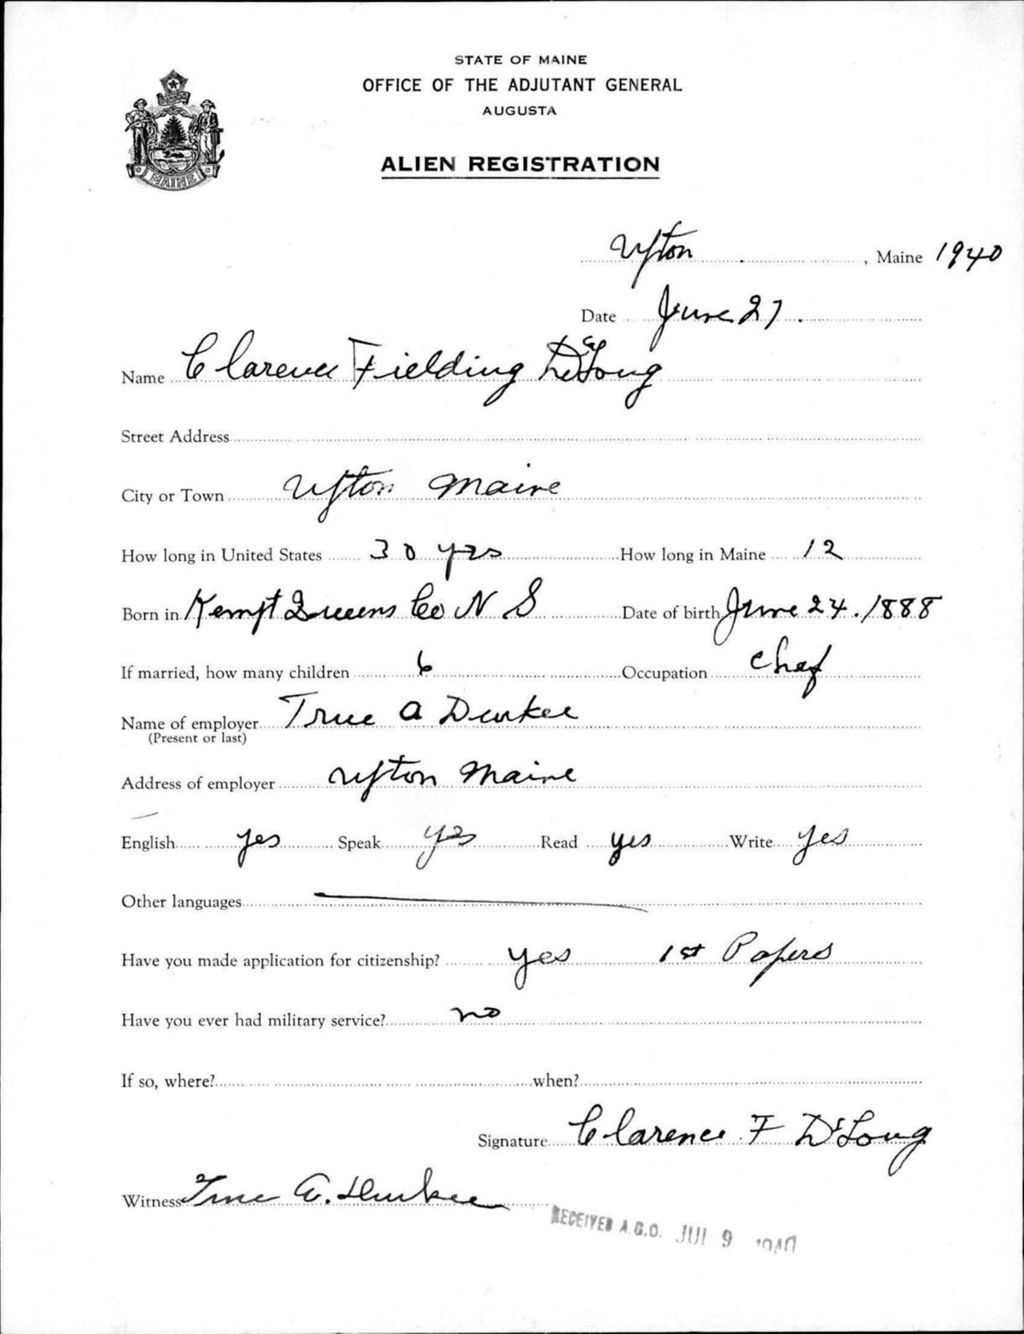 STATE OF MAINE
OFFICE OF THE ADJUTANT GENERAL
AUGUSTA
MAINE
ALIEN REGISTRATION
Upton, Maine 1940
Date June 27.
Name Clarence Fielding DeLong
Street Address
City or Town Upton Maine
How long in United States 30 yrs How long in Maine 12
Born in Kempt Queens Co N S Date of birth June 24. 1888
If married, how many children 6 Occupation Chef
Name of employer True A Durkee
(Present or last)
Address of employer Upton Maine
English yes Speak yes Read yes Write yes
Other languages
Have you made application for citizenship? yes 1st Papers
Have you ever had military service? no
If so, where? when?
Signature Clarence F DeLong
Witness True A. Durkee
RECEIVED A.G.O. JUL 9 1940